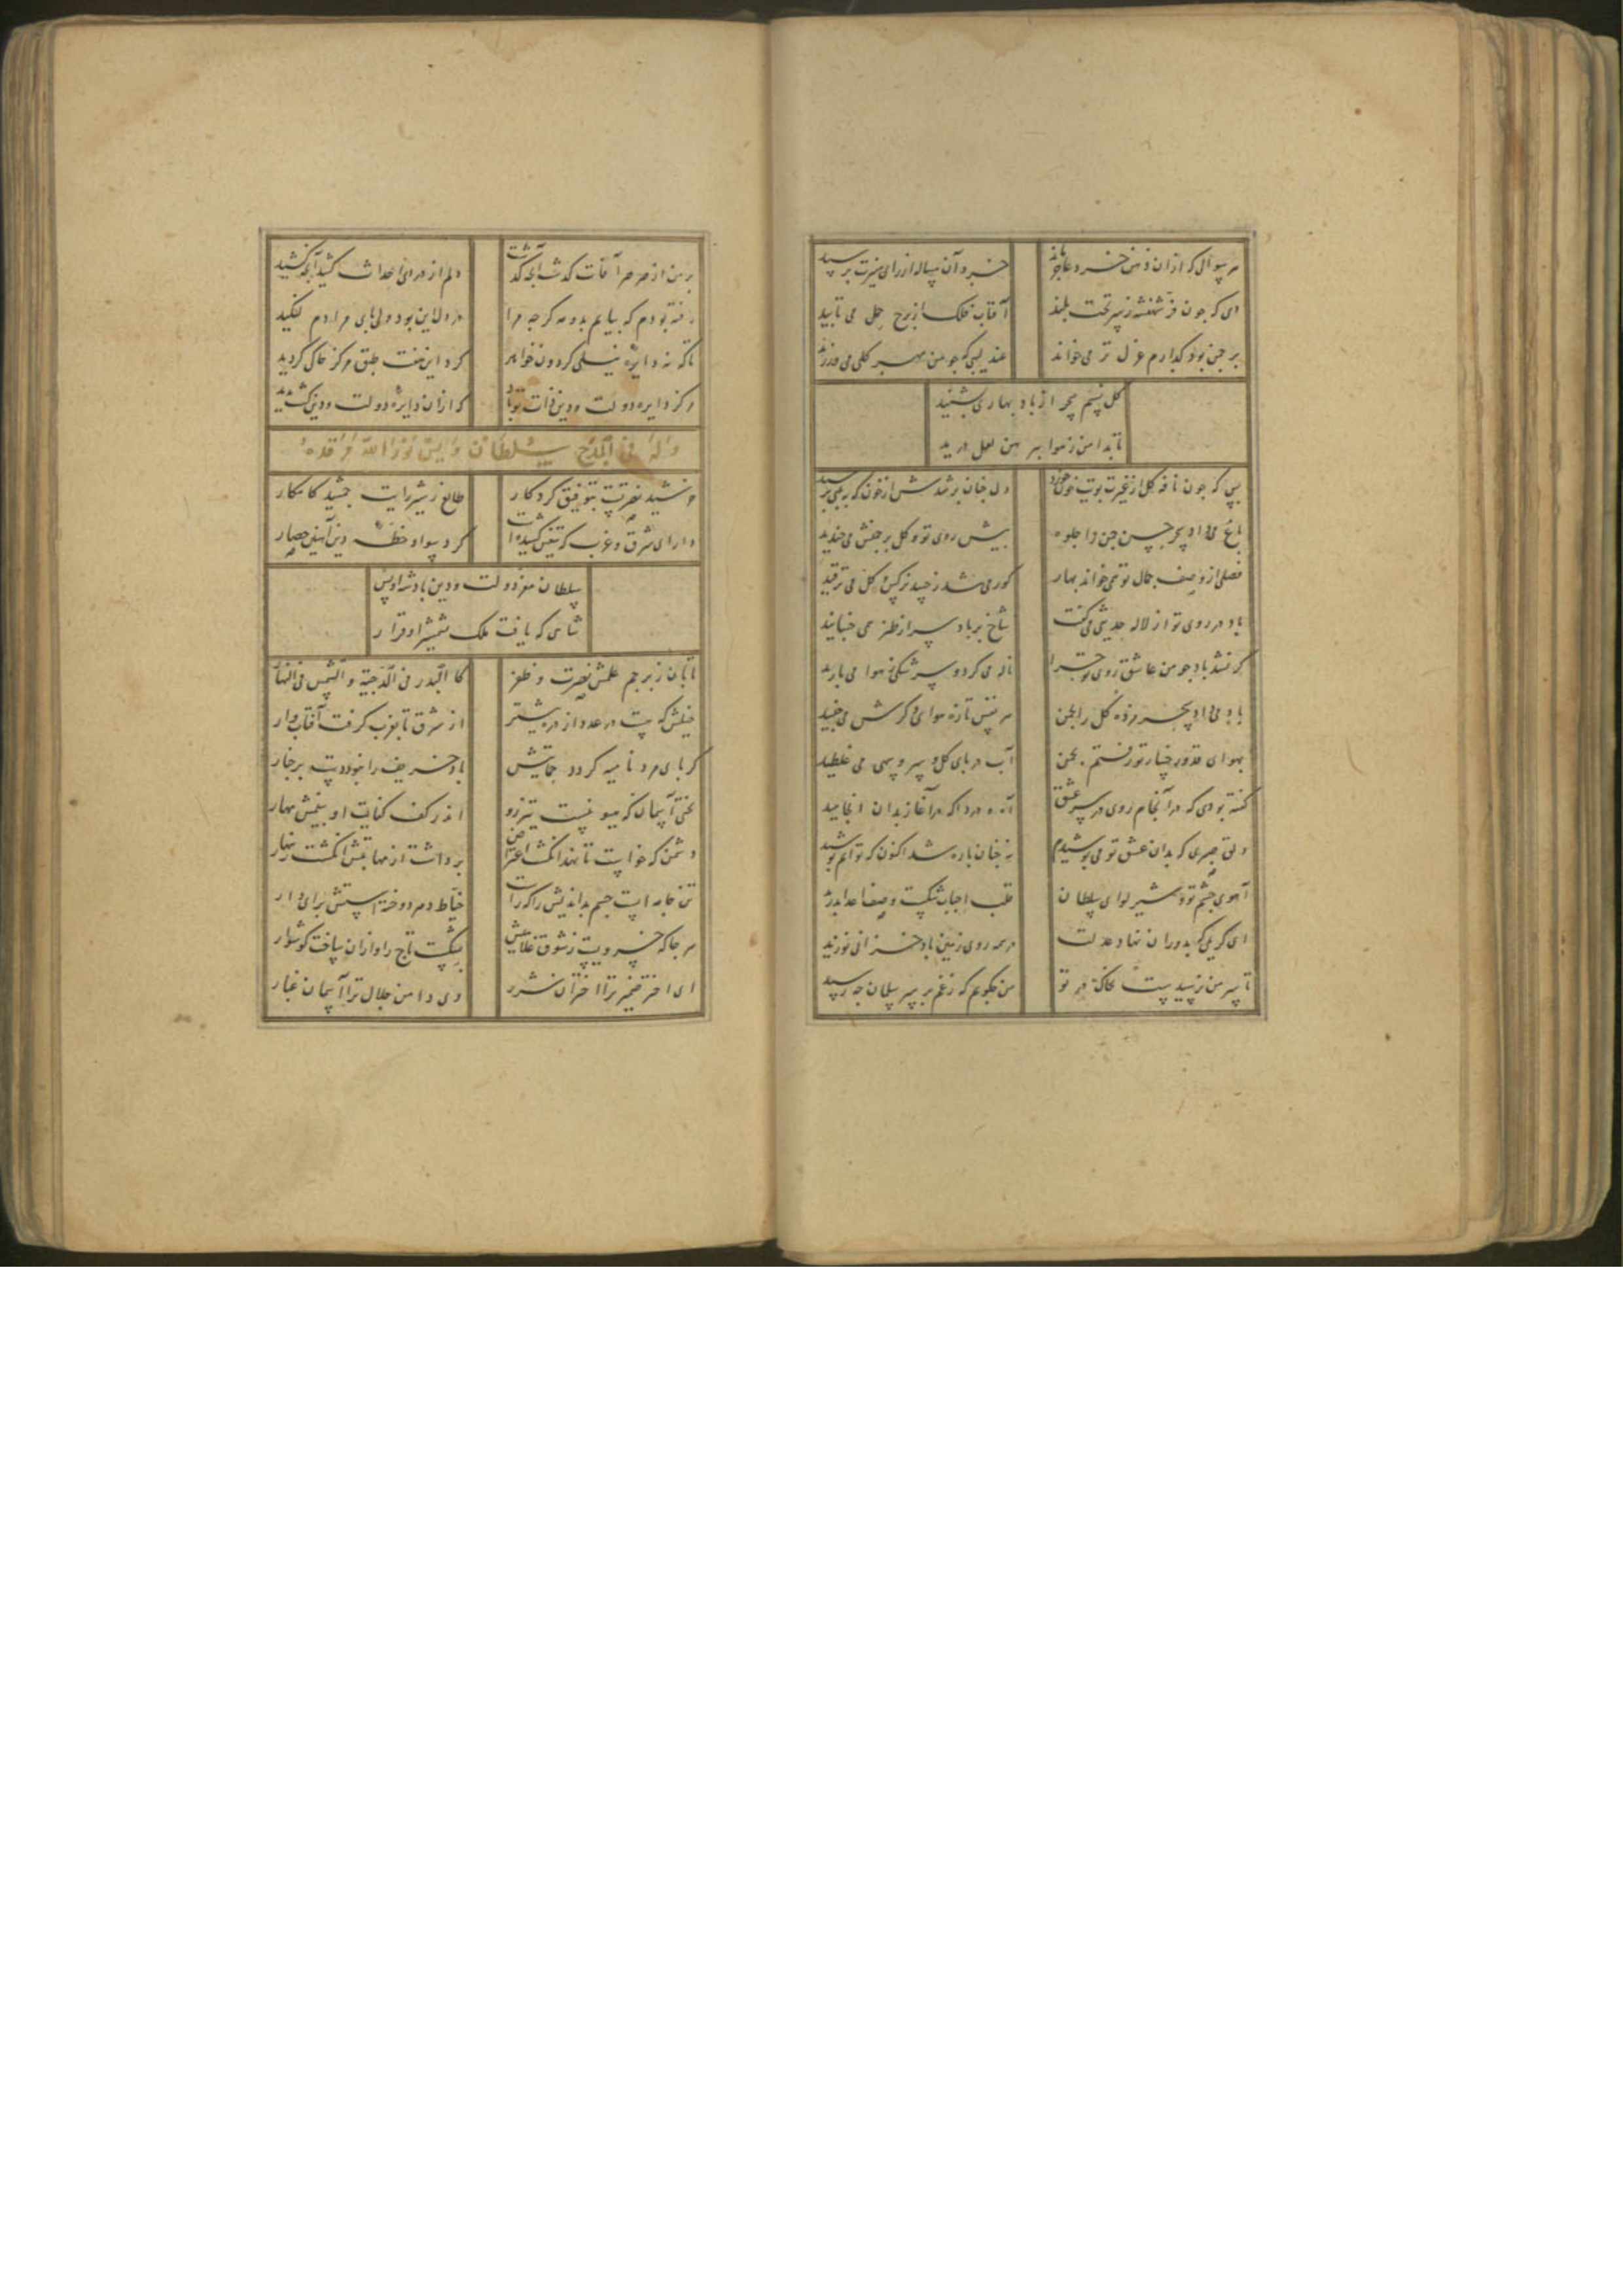 هر سوالی که ازان ذهن خرد عاجز ماند
خرد آن مساله از رای منیرت پرسید
دی که چون فر شهنشه ز سر تخت بلند
آفتاب فلک از برج حمل می تابید
بر چمن بود گذارم غزل تر می خواند
عندلیبی که چو من مهر گلی می ورزید
گل نسیم سحر از باد بهاری بشنید
تا بدامن ز هوا پیرهن لعل درید
بس که چون نافه گل از غیرت بویت خون خورد
دل چنان بر شدش از خون که به لب می رسید
باغ می داد سحر حسن چمن را جلوه
پیش روی تو گل بر چمنش می خندید
فصلی از وصف جمال تو همی خواند بهار
کور می شد ز حسد نرگس و گل می ترقید
باد در روی تو از لاله حدیثی می گفت
شاخ بر باد سر از طنز همی جنبانید
گر نشد باد چو من عاشق روی تو چرا
ناله می کرد و سرشکی ز هوا می بارید
باد می داد سحر مژده گل را بچمن
هر نفس تازه هوای دگرش می جنبید
بهوای قد و رخسار تو رفتم بچمن
آب در پای گل و سرو سهی می غلطید
گفته بودی که در انجام روی در سر عشق
آه ه دردا که در آغاز بدان انجامید
دلق صبری که بدان عشق تو می پوشیدم
نه چنان پاره شد اکنون که توانم پوشید
آهوی چشم تو و شیر لوای سلطان
قلب احباب شکست وصف اعدا بدرید
ای کریمی که بدوران نهاد عدلت
در همه روی زمین باد خزانی نوزید
تا سر من نرسیدست بخاک در تو
من چگویم که ز غم بر سر سلمان چه رسید
بر من از صرصر آفات گذشت آنچه گذشت
دلم از درد احداث کشید آنچه کشید
رفته بودم که بیایم بدو مه گر چه مرا
در دل این بود ولی پای مرادم لنگید
تا که نه دایره نیلی گردون خواهد
گرد این هفت طبق مرکز خاکی گردید
مرکز دایره دولت و دین ذات تو باد
که ازان دایره دولت و دین گشت پدید
وله فی المدح سلطان اویس نور الله مرقده
خورشید نصرتست بتوفیق کردگار
طالع ز شیر رایت جمشید کامکار
دارای شرق و غرب که تیغش کشیده است
گرد سواد خطه دین آهنین حصار
سلطان معز دولت و دین پادشه اویس
شاهی که یافت ملک بشمشیر او قرار
تابان ز برجم علمش نصرت و ظفر
کالبدر فی الدجیة و الشمس فی النهار
خیلش که هست در عدد از ذره بیشتر
از شرق تا بغرب گرفت آفتاب وار
گر پای مرد نامیه گردد حمایتش
باد خریف را نبود دست بر خار
نخل آسمان که میو نیست تیزرو
اندر کف کفایت او بینمش مهار
دشمن که خواست تا نهد انگشت اعتراض
برداشت از مهابتش انگشت زینهار
تن جامه ایست جسم بداندیش را که راست
خیاط دهر دوخته استش برای دار
هر جا که خسرویست ز شوق غلامیش
بشکست تاج را و ازان ساخت گوشوار
ای اختر ضمیر ترا اختران شرر
وی دامن جلال ترا آسمان غبار